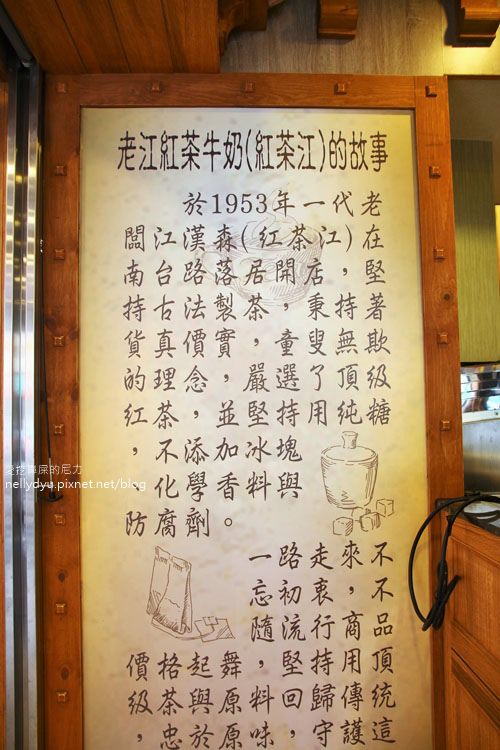 老江紅茶牛奶(紅茶江)的故事
於1953年一代老
闆江漢森(紅茶江)在
南台路落居開店，堅
持古法製茶，秉持著
貨真價實，童叟無欺
的理念，嚴選了頂級
紅茶，並堅持用純糖
，不添加冰塊
化學香料與
防腐劑。
一路走來，不
忘初衷，不
隨流行商品
價格起舞，堅持用頂
級茶與原料，回歸傳統
，忠於原味，守護這
愛挖鼻屎的尼力
nellydyu.pixnet.net/blog